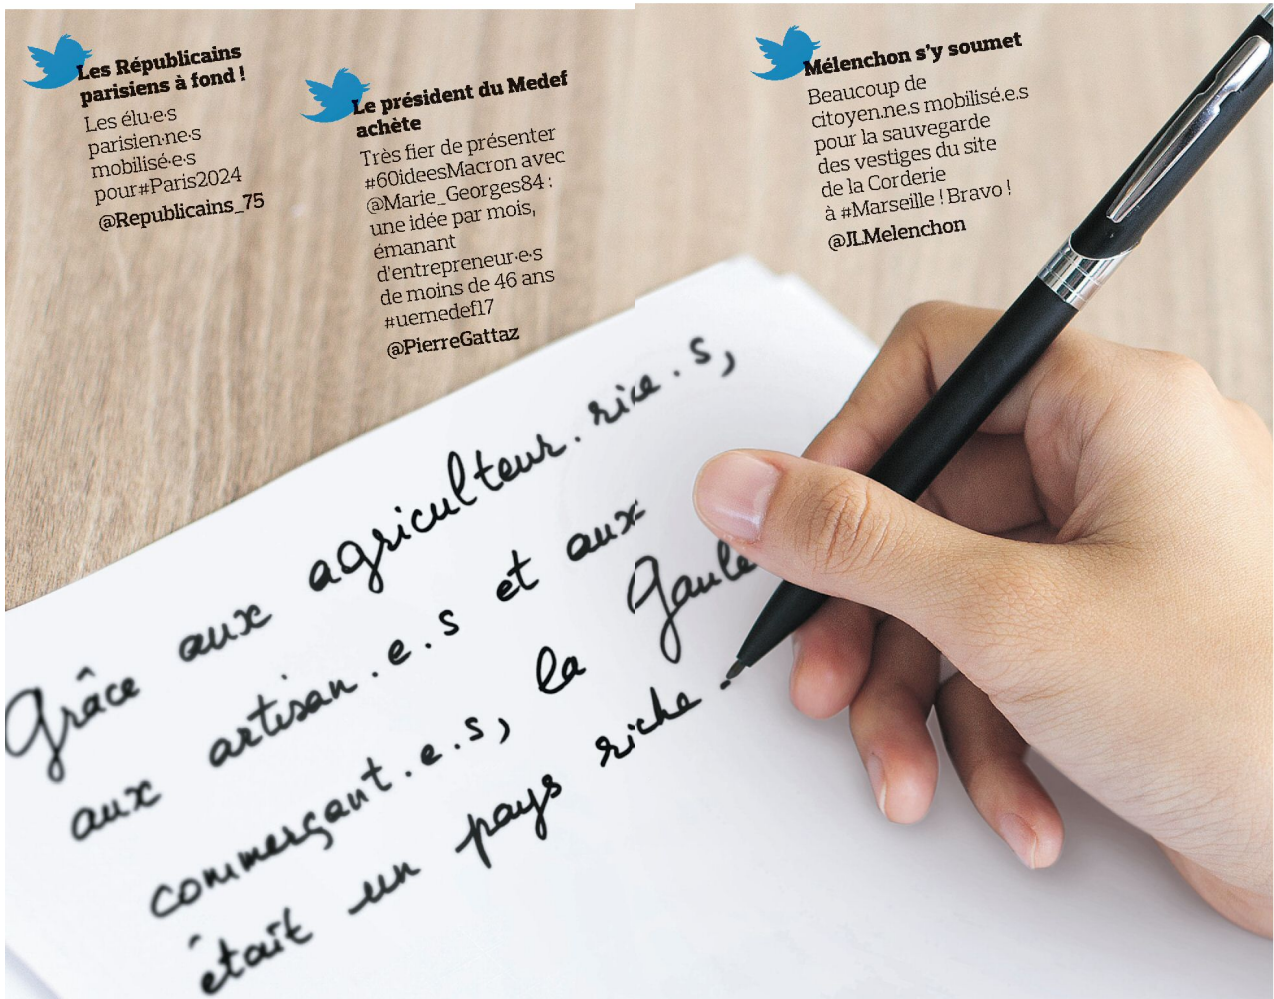 Les Républicains
parisiens à fond !
Les élu·e·s
parisien·ne·s
mobilisé·e·s
pour#Paris2024
@Republicains_75
Le président du Medef
achète
Très fier de présenter
#60ideesMacron avec
@Marie_Georges84 :
une idée par mois,
émanant
d'entrepreneur·e·s
de moins de 46 ans
#uemedef17
@PierreGattaz
Mélenchon s'y soumet
Beaucoup de
citoyen.ne.s mobilisé.e.s
pour la sauvegarde
des vestiges du site
de la Corderie
à #Marseille ! Bravo !
@JLMelenchon
Grâce aux agriculteur.rice.s,
aux artisan.e.s et aux
commerçant.e.s, la Gaule
était un pays riche.